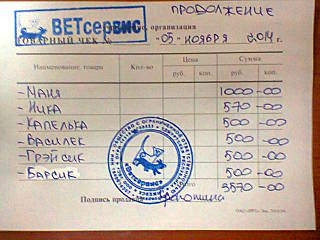 ПРОДОЛЖЕНИЕ
ВЕТсервис
организация
ТОВАРНЫЙ ЧЕК № -05- НОЯБРЯ 2014 г.
Наименование, товара Кол-во Цена Сумма
руб. коп. руб. коп.
-МАНЯ 1000-00
-НИКА 570-00
-КАПЕЛЬКА 500-00
-ВАСИЛЕК 500-00
-ГРЭЙСИК 500-00
-БАРСИК 500-00
3570-00
"Ветсервис"
Подпись